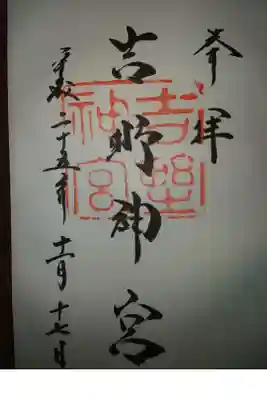 奉拝
吉野神宮
吉野神宮
平成二十五年十一月十七日